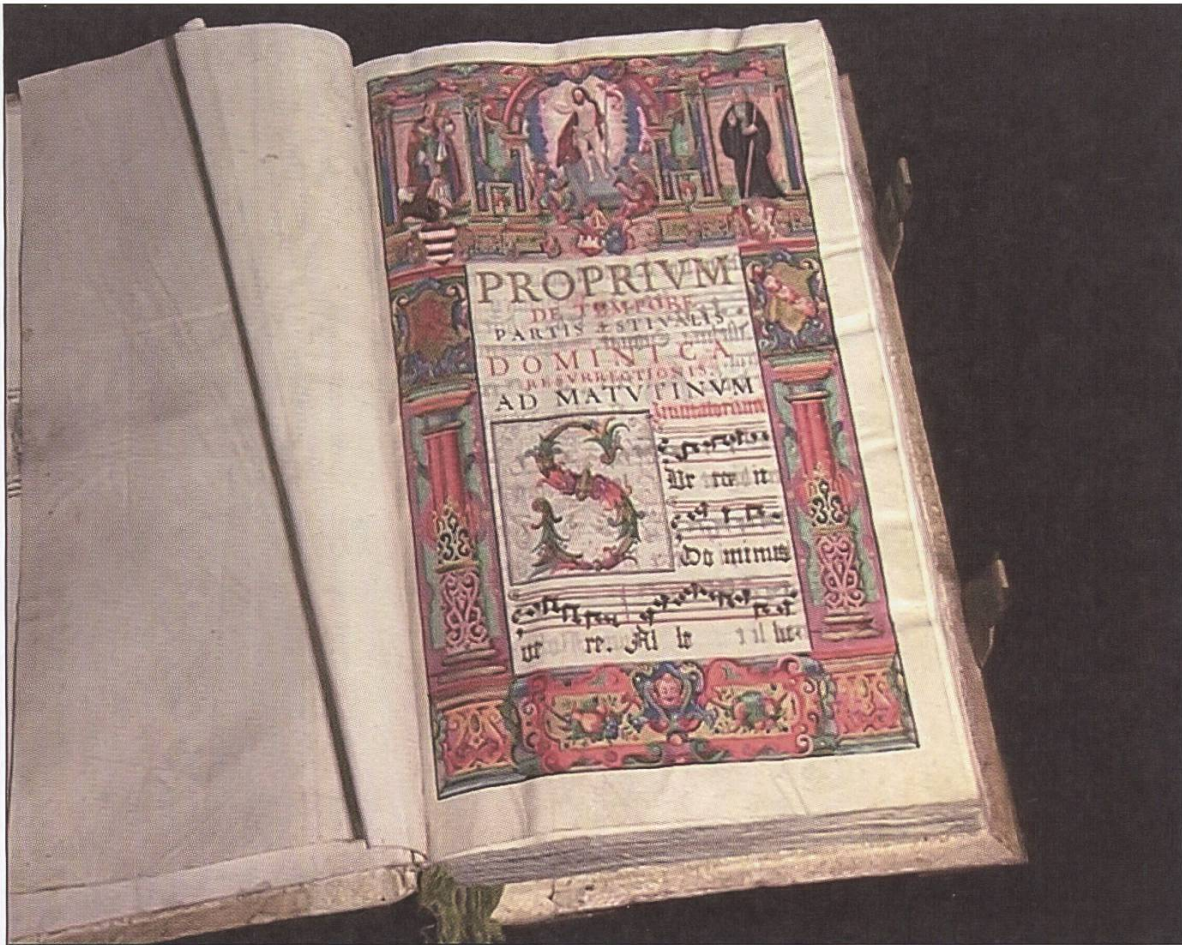 PROPRIVM
DE TEMPORE
PARTIS ÆSTIVALIS
DOMINICA
RESVRRECTIONIS.
AD MATVTINVM
Inuitatorium
S Ur re it
Do minus
ve re. Al le